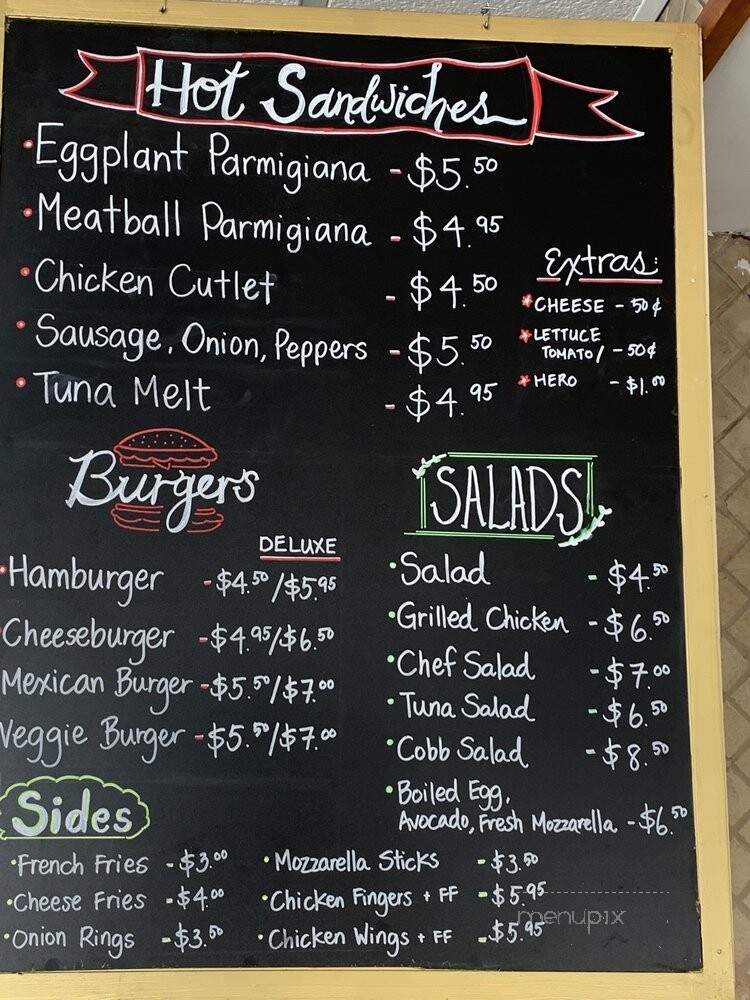 Hot Sandwiches
• Eggplant Parmigiana - $5.50
• Meatball Parmigiana - $4.95
• Chicken Cutlet - $4.50
• Sausage, Onion, Peppers - $5.50
• Tuna Melt - $4.95
Extras:
* CHEESE - 50¢
* LETTUCE
TOMATO/ - 50¢
* HERO - $1.00
Burgers
DELUXE
• Hamburger - $4.50/$5.95
Cheeseburger - $4.95/$6.50
Mexican Burger - $5.50/$7.00
Veggie Burger - $5.50/$7.00
SALADS
• Salad - $4.50
• Grilled Chicken - $6.50
• Chef Salad - $7.00
• Tuna Salad - $6.50
• Cobb Salad - $8.50
• Boiled Egg,
Avocado, Fresh Mozzarella - $6.50
Sides
• French Fries - $3.00
• Cheese Fries - $4.00
• Onion Rings - $3.50
• Mozzarella Sticks - $3.50
• Chicken Fingers + FF - $5.95
• Chicken Wings + FF - $5.95
menupix